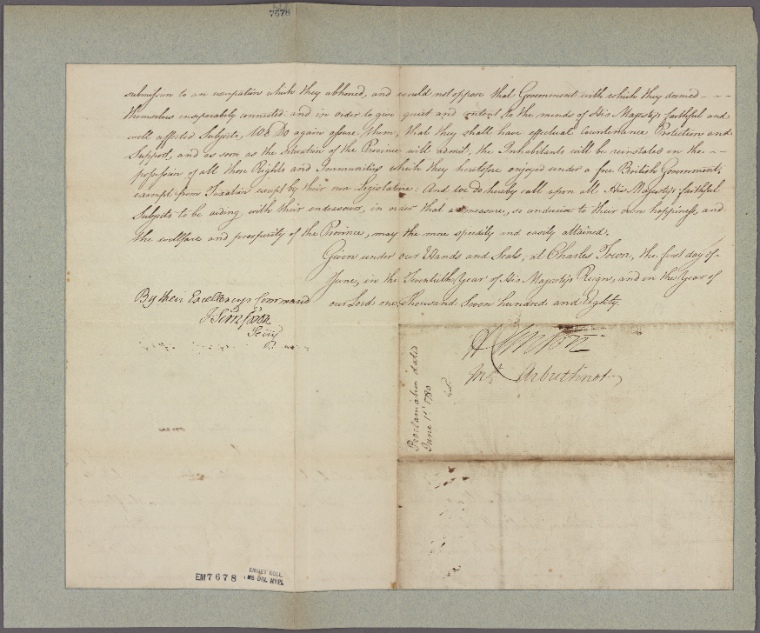 7678
submission to an usurpation which they abhorred, and would not oppose that Government with which they deemed
themselves inseparably connected: and in order to give quiet and content to the minds of His Majestys faithful and
well affected Subjects, WE Do again assure them, that they shall have effectual Countenance Protection and
Support, and as soon as the situation of the Province will admit, the Inhabitants will be reinstated in the
possession of all those Rights and Immunities which they heretofore enjoyed under a free British Government,
exempt from Taxation except by their own Legislature: And we do hereby call upon all His Majestys faithful
Subjects to be aiding with their endeavours, in order that a measure, so conducive to their own happiness, and
the wellfare and prosperity of the Province, may the more speedily and easily attained.
Given under our Hands and Seals, at Charles Town, the first day of
June, in the Twentieth Year of His Majestys Reign, and in the Year of
our Lord one thousand seven hundred and Eighty.
By their Excellencys Command
J Simpson
Secry
H Clinton
Mt Arbuthnot
Proclamation dated
June 1st 1780
EM7678
EMMET COLL.